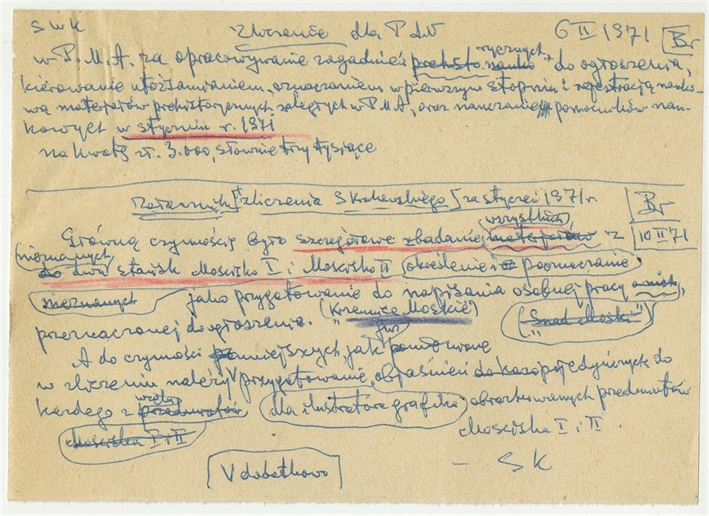 SWK Zliczenie dla P.d.N 6 II 1971 Br
w P.M.A. za opracowywanie zagadnień prehistorycznych do ogłoszenia,
kierowanie utożsamianiem, oznaczaniem w pierwszym stopniu i rejestracją nauko-
wą materiałów prehistorycznych zaległych w P.M.A., oraz nauczanie pomocników nau-
kowych w styczniu r. 1971
na kwotę zł. 3.000, słownie trzy tysiące
Załącznik zliczenia S Krukowskiego za styczeń 1971 r. Br
wszystkich
Główną czynnością było szczegółowe zbadanie materiałów z 10 II 71
nieznanych
do dwu stanisk Mosisko I i Mosisko II określenie i poznaczanie
nieznanych jako przygotowanie do napisania osobnej pracy
przeznaczonej do ogłoszenia. (Korzenica Moskie) ("Snad Moski")
już
A do czynności pomniejszych jak
w zliczeniu należy przygotowanie objaśnień do
każdego z przedmiotów dla ilustratora grafika obrazkowanych przedmiotów
Mosiska I i II Mosiska I i II.
V dodatkowo – SK